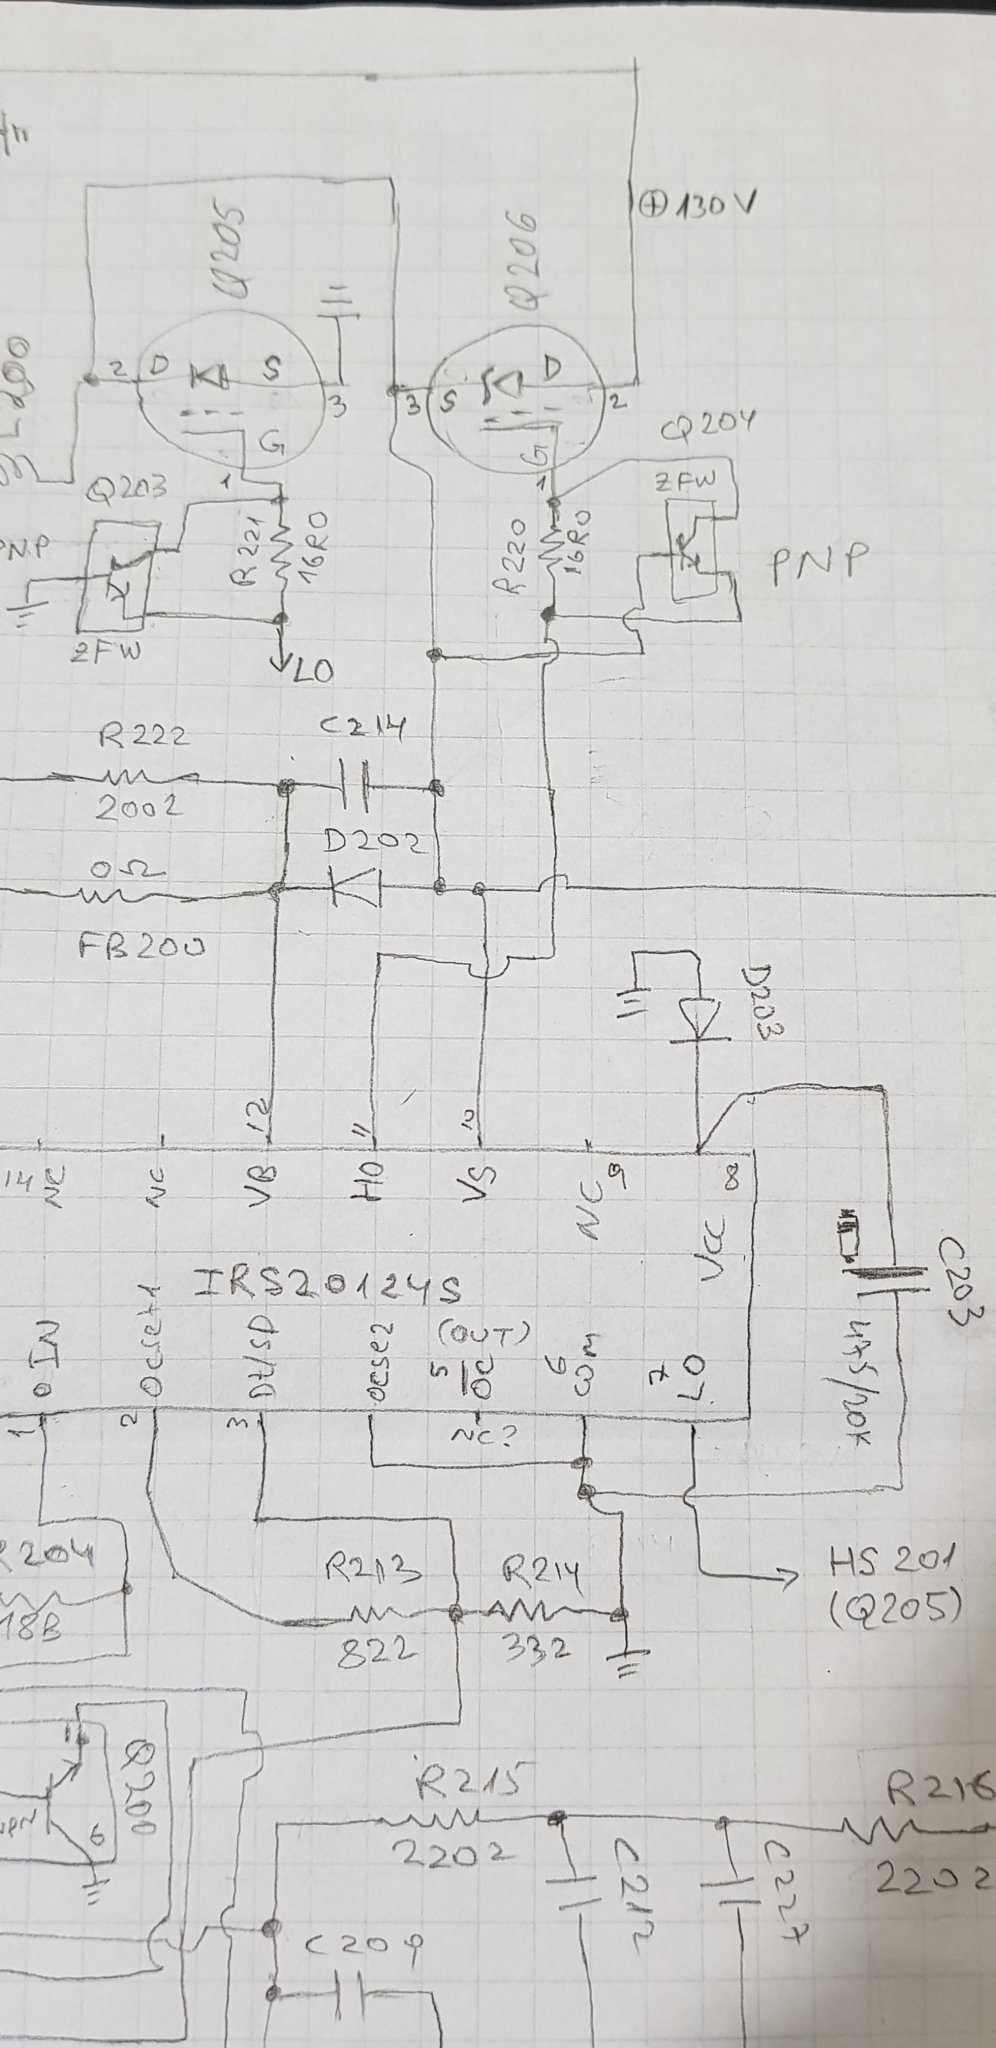 Q205
Q206
⊕130V
2 D S 3
3 S D 2
G
G
1
1
Q203
Q204
ZFW
PNP
R221
16R0
R220
16R0
ZFW
LO
R222
2002
C214
D202
0Ω
FB200
D203
12
11
10
14
NC
NC
VB
HO
VS
NC
9
VCC
8
IRS20124S
(OUT)
C203
475/20K
IN
OCSET1
DT/SD
5
OC
6
COM
7
LO
1
2
3
NC?
HS201
(Q205)
R213
822
R214
332
18B
Q200
6
R215
2202
R216
2202
C212
C227
C209